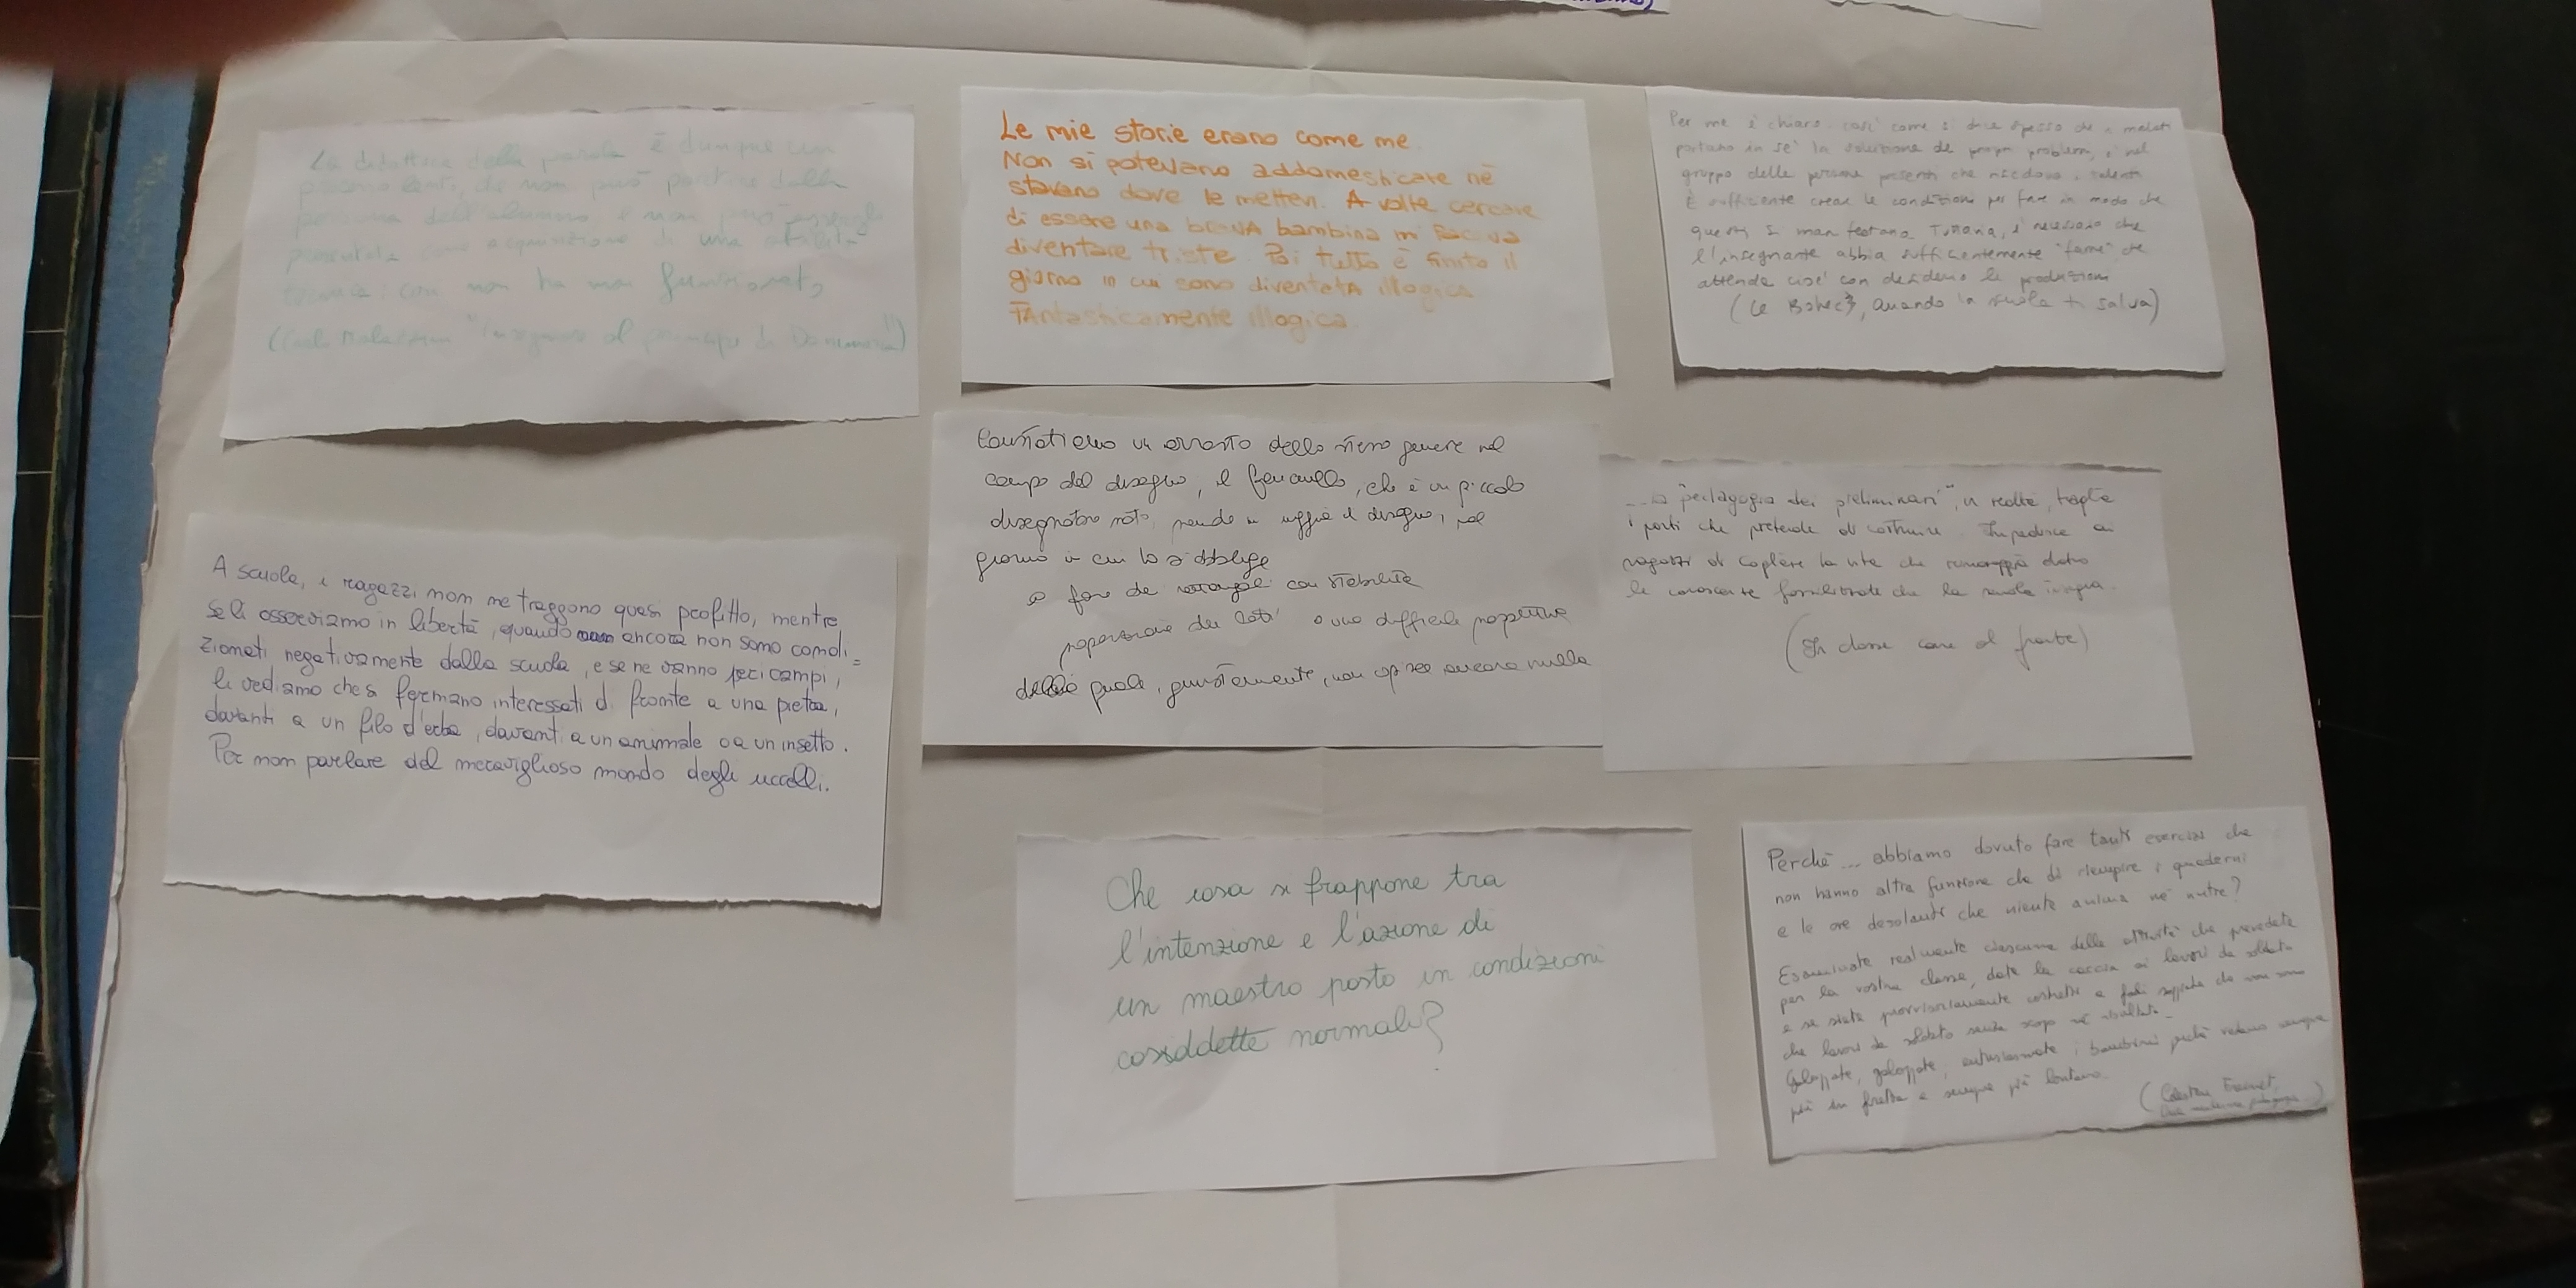 La didattica della parola è dunque un
processo lento, che non può partire dalla
persona dell'alunno, e non può essergli
presentata come acquisizione di una abilità
tecnica: così non ha mai funzionato
"Insegnare al principe di Danimarca")
Le mie storie erano come me.
Non si potevano addomesticare né
stavano dove le mettevi. A volte cercare
di essere una brava bambina mi faceva
diventare triste. Poi tutto è finito il
giorno in cui sono diventata illogica
Fantasticamente illogica.
Per me è chiaro così come si dice spesso che i malati
portano in se' la soluzione dei propri problemi, è nel
gruppo delle persone presenti che risiedono i talenti
È sufficiente creare le condizioni per fare in modo che
questi si manifestano. Tuttavia, è necessario che
l'insegnante abbia sufficientemente "fame" che
attenda cioe' con desiderio le produzioni
(Le Bohec, Quando la scuola ti salva)
Constatiamo un arresto dello stesso genere nel
campo del disegno, il fanciullo, che è un piccolo
disegnatore nato, prende in uggia il disegno, nel
giorno in cui lo si obbliga
a fare dei rettangoli con stabilite
proporzioni dei lati o una difficile prospettiva
della quale, giustamente, non capisce ancora nulla
... la "pedagogia dei preliminari", in realtà, taglia
i ponti che pretende di costruire. Impedisce ai
ragazzi di cogliere la vita che rumoreggia dietro
le conoscenze fossilizzate che la scuola insegna.
(In classe come al fronte)
A scuola, i ragazzi non ne traggono quasi profitto, mentre
se li osserviamo in libertà, quando ancora non sono condi=
zionati negativamente dalla scuola, e se ne vanno per i campi,
li vediamo che si fermano interessati di fronte a una pietra,
davanti a un filo d'erba, davanti a un animale o a un insetto.
Per non parlare del meraviglioso mondo degli uccelli.
Che cosa si frappone tra
l'intenzione e l'azione di
un maestro posto in condizioni
cosiddette normali?
Perché... abbiamo dovuto fare tanti esercizi che
non hanno altra funzione che di riempire i quaderni
e le ore desolanti che niente anima né nutre?
Esaminate realmente ciascuna delle attività che prevedete
per la vostra classe, date la caccia ai lavori da soldato
e se siete provvisoriamente costretti a farli sappiate che non sono
che lavori da soldato senza scopo né risultato.
Galoppate, galoppate, entusiasmate i bambini perché vadano sempre
più in fretta e sempre più lontano.
(Célestin Freinet,